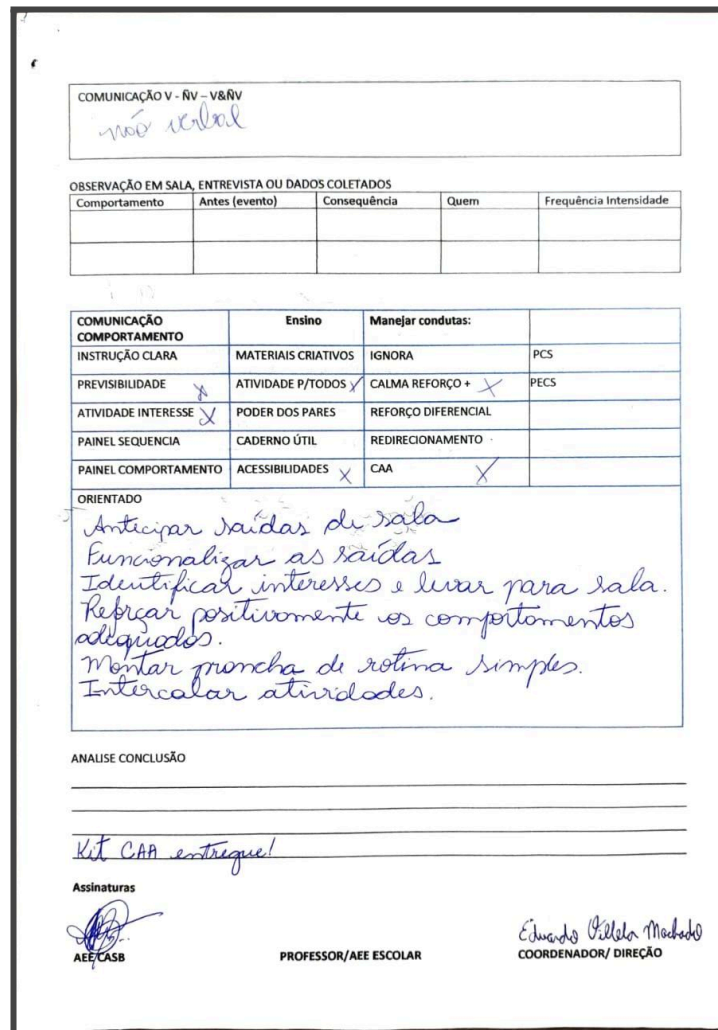 COMUNICAÇÃO V - ÑV – V&ÑV
não verbal
OBSERVAÇÃO EM SALA, ENTREVISTA OU DADOS COLETADOS
Comportamento Antes (evento) Consequência Quem Frequência Intensidade
COMUNICAÇÃO COMPORTAMENTO Ensino Manejar condutas:
INSTRUÇÃO CLARA MATERIAIS CRIATIVOS IGNORA PCS
PREVISIBILIDADE X ATIVIDADE P/TODOS X CALMA REFORÇO + X PECS
ATIVIDADE INTERESSE X PODER DOS PARES REFORÇO DIFERENCIAL
PAINEL SEQUENCIA CADERNO ÚTIL REDIRECIONAMENTO
PAINEL COMPORTAMENTO ACESSIBILIDADES X CAA X
ORIENTADO
Antecipar saídas de sala
Funcionalizar as saídas
Identificar interesses e levar para sala.
Reforçar positivamente os comportamentos
adequados.
Montar prancha de rotina simples.
Intercalar atividades.
ANALISE CONCLUSÃO
Kit CAA entregue!
Assinaturas
Eduardo Villela Machado
AEE/CASB PROFESSOR/AEE ESCOLAR COORDENADOR/ DIREÇÃO